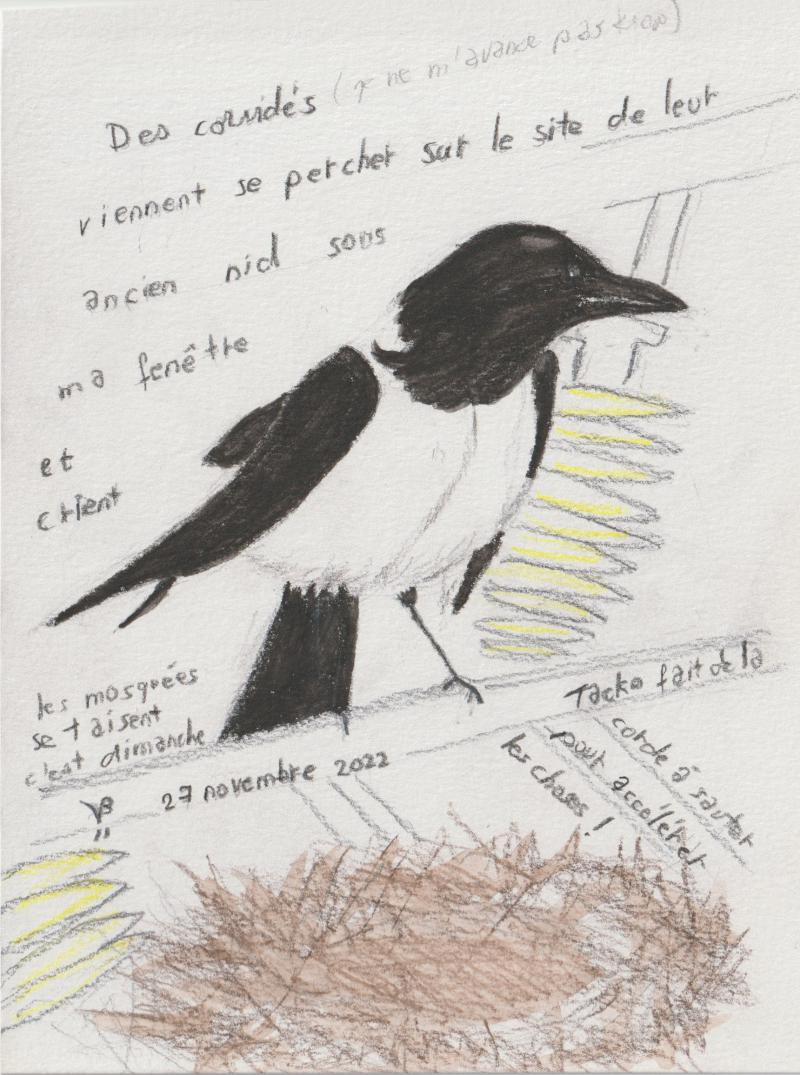 Des corvidés (je ne m'avance pas trop)
viennent se percher sur le site de leur
ancien nid sous
ma fenêtre
et
crient
les mosquées
se taisent
c'est dimanche
27 novembre 2022
Tacko fait de la
corde à sauter
pour accélérer
les choses !